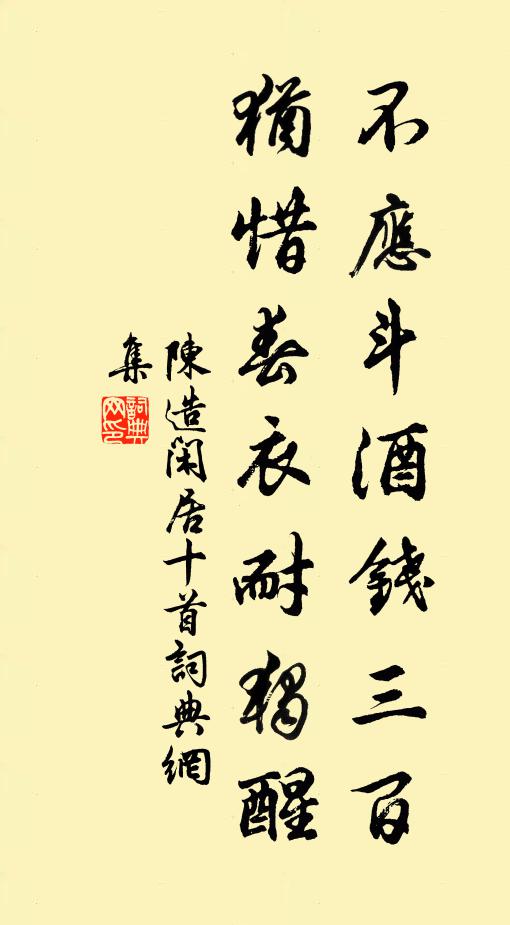 不應斗酒錢三百
猶惜春衣耐獨醒
陳造閑居十首詞典網
集
詞典网印